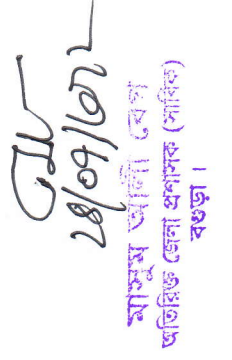 ২৪/০৭/২৫
মাসুম আলী বেগ
অতিরিক্ত জেলা প্রশাসক (সার্বিক)
বগুড়া।